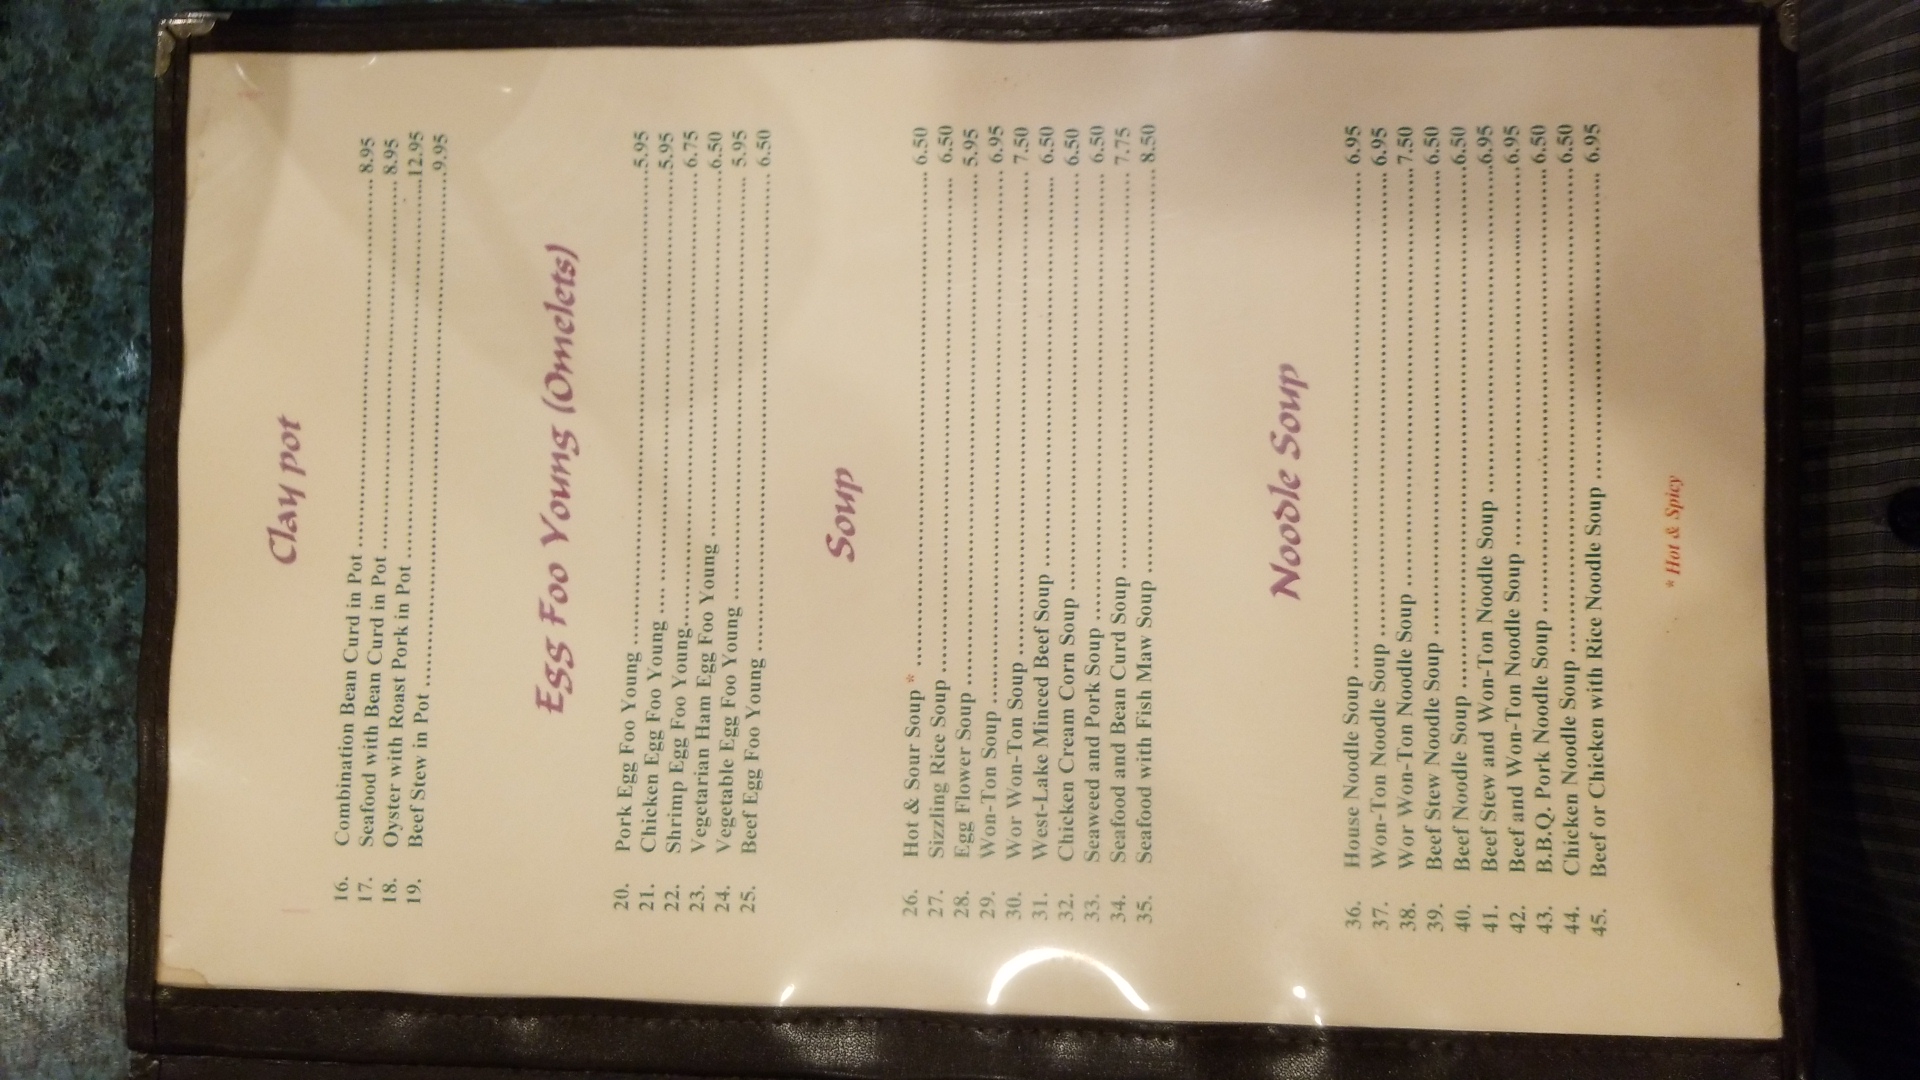 Clay pot
16. Combination Bean Curd in Pot ........ 8.95
17. Seafood with Bean Curd in Pot ........ 8.95
18. Oyster with Roast Pork in Pot ........ 12.95
19. Beef Stew in Pot ........ 9.95
Egg Foo Young (Omelets)
20. Pork Egg Foo Young ........ 5.95
21. Chicken Egg Foo Young ........ 5.95
22. Shrimp Egg Foo Young ........ 6.75
23. Vegetarian Ham Egg Foo Young ........ 6.50
24. Vegetable Egg Foo Young ........ 5.95
25. Beef Egg Foo Young ........ 6.50
Soup
26. Hot & Sour Soup * ........ 6.50
27. Sizzling Rice Soup ........ 6.50
28. Egg Flower Soup ........ 5.95
29. Won-Ton Soup ........ 6.95
30. Wor Won-Ton Soup ........ 7.50
31. West-Lake Minced Beef Soup ........ 6.50
32. Chicken Cream Corn Soup ........ 6.50
33. Seaweed and Pork Soup ........ 6.50
34. Seafood and Bean Curd Soup ........ 7.75
35. Seafood with Fish Maw Soup ........ 8.50
Noodle Soup
36. House Noodle Soup ........ 6.95
37. Won-Ton Noodle Soup ........ 6.95
38. Wor Won-Ton Noodle Soup ........ 7.50
39. Beef Stew Noodle Soup ........ 6.50
40. Beef Noodle Soup ........ 6.50
41. Beef Stew and Won-Ton Noodle Soup ........ 6.95
42. Beef and Won-Ton Noodle Soup ........ 6.95
43. B.B.Q. Pork Noodle Soup ........ 6.50
44. Chicken Noodle Soup ........ 6.50
45. Beef or Chicken with Rice Noodle Soup ........ 6.95
* Hot & Spicy